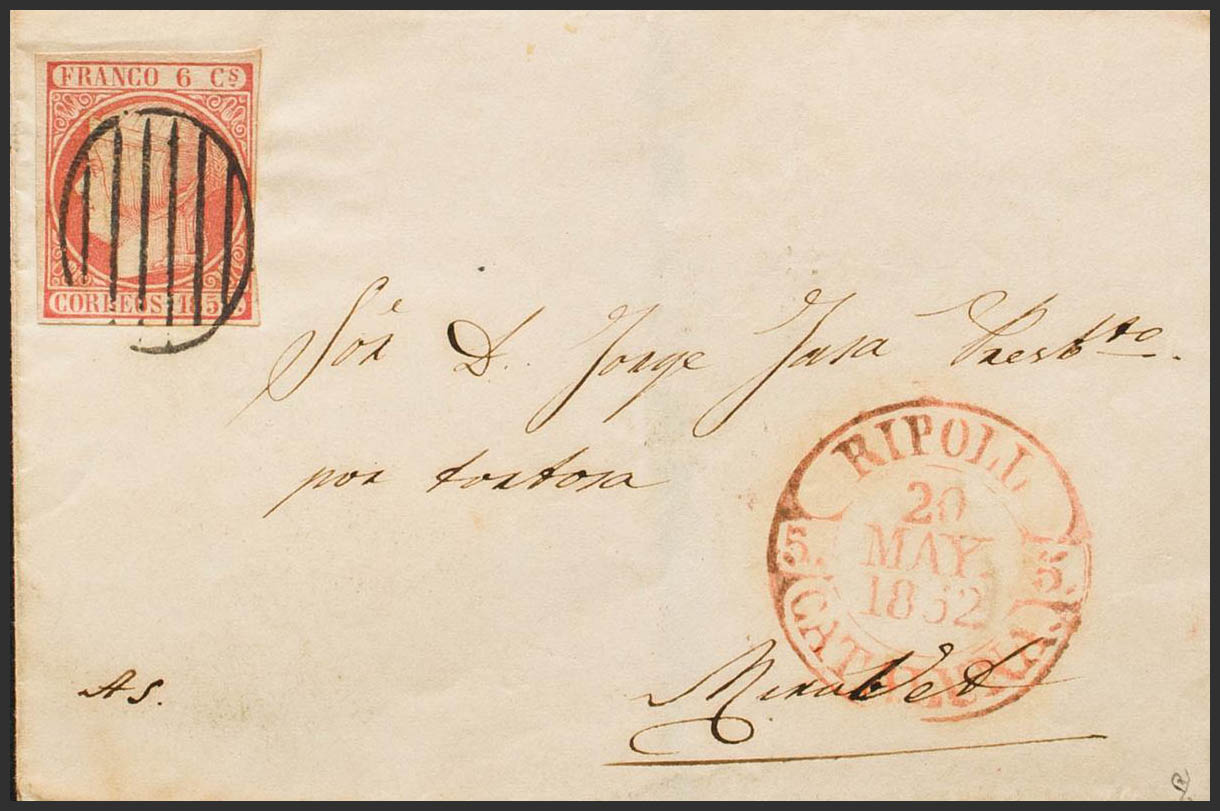 FRANCO 6 Cs
CORREOS 185
Sör D. Jorge Jasa Presbto.
por tortosa
RIPOLL
20
MAY.
1852
5. 5.
CATALUÑA
Mirabet
As.